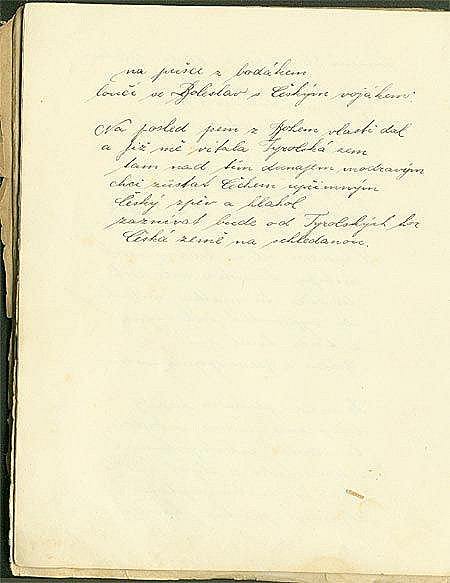 na pušce z bodákem
loučí se Boleslav s Českým vojákem.
Na posled jsem z Bohem vlasti dal
a již mě vítala Tyrolská zem
tam nad tím dunajem modravým
chci zůstat Čechem upřímným
Český zpěv a hlahol
zaznívat bude od Tyrolských hor
Česká země na schledanou.